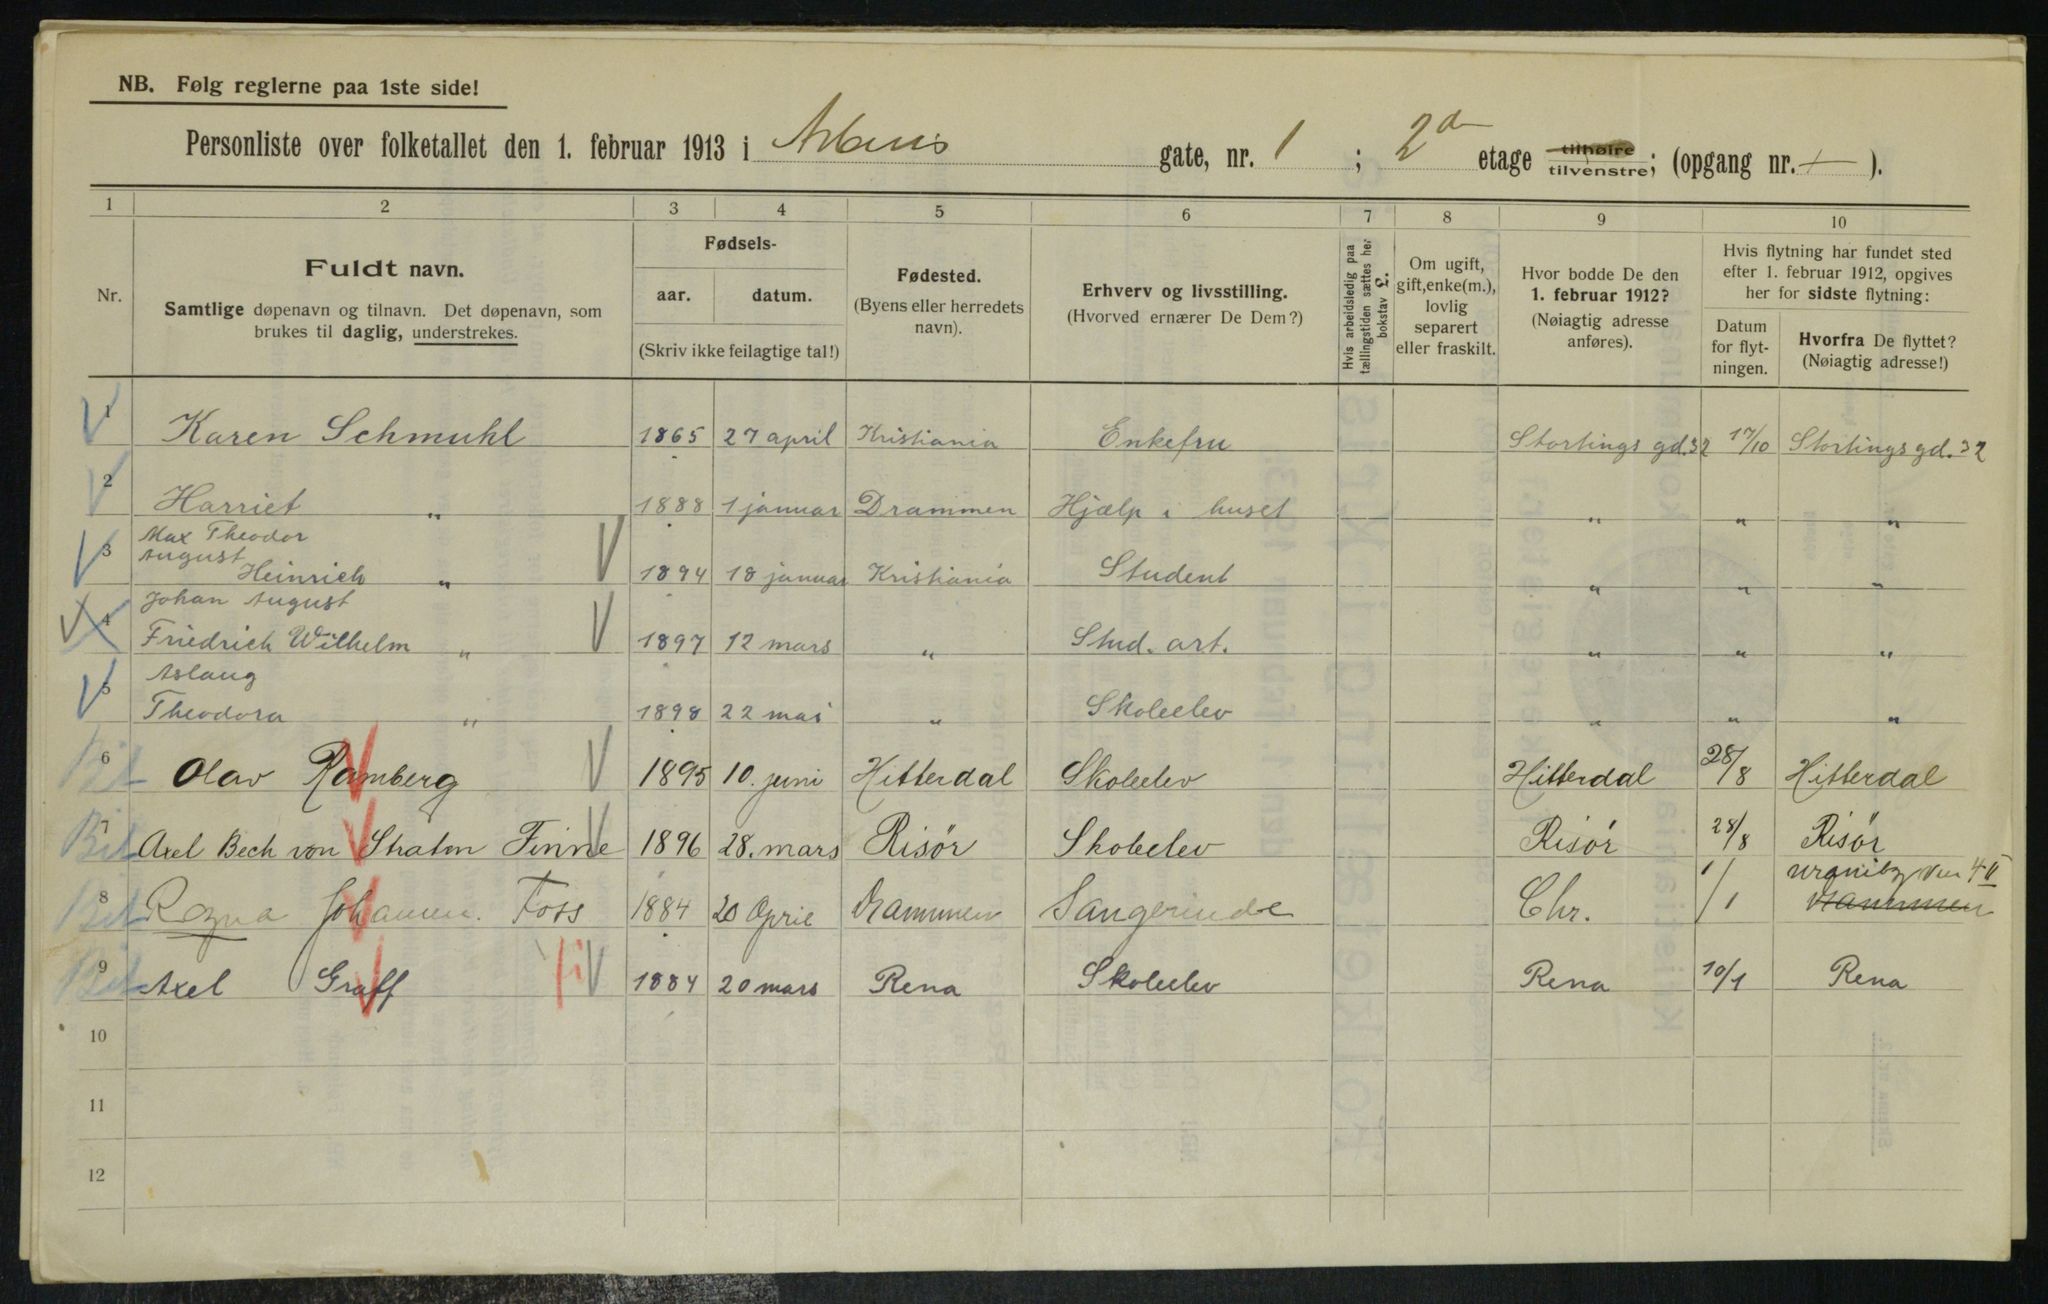 NB. Følg reglerne paa 1ste side!
Personliste over folketallet den 1. februar 1913 i Arbins gate, nr. 1 ; 2den etage tilhøire tilvenstre; (opgang nr. + ).
1 2 3 4 5 6 7 8 9 10
Nr.
Fuldt navn.
Samtlige døpenavn og tilnavn. Det døpenavn, som
brukes til daglig, understrekes.
Fødsels-
aar. datum.
(Skriv ikke feilagtige tal!)
Fødested.
(Byens eller herredets
navn).
Erhverv og livsstilling.
(Hvorved ernærer De Dem?)
Hvis arbeidsledig paa
tællingstiden sættes her
bokstav £.
Om ugift,
gift, enke(m.),
lovlig
separert
eller fraskilt.
Hvor bodde De den
1. februar 1912?
(Nøiagtig adresse
anføres).
Hvis flytning har fundet sted
efter 1. februar 1912, opgives
her for sidste flytning:
Datum
for flyt-
ningen.
Hvorfra De flyttet?
(Nøiagtig adresse!)
1 Karen Schmuhl 1865 27 april Kristiania Enkefru Stortings gd. 32 17/10 Stortings gd. 32
2 Harriet " 1888 1 januar Drammen Hjælp i huset " " "
Max Theodor
3 August
Heinrich " 1894 18 januar Kristiania Student " " "
Johan August
4 Friedrich Wilhelm " 1897 12 mars " Stud. art. " " "
Aslaug
5 Theodora " 1898 22 mai " Skoleelev " " "
6 Olav Ramberg 1895 10. juni Hitterdal Skoleelev Hitterdal 28/8 Hitterdal
7 Axel Bech von Stralm Finne 1896 28. mars Risör Skoleelev Risör 28/8 Risör
8 Ragna Johanne. Foss 1884 20 April Drammen Sangerinde Chr. 1/1 4 II
Drammen
9 Axel Graff 1884 20 mars Rena Skoleelev Rena 10/1 Rena
10
11
12